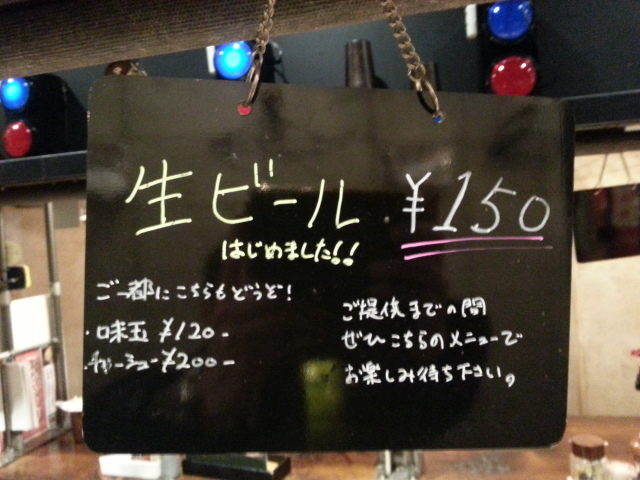 生ビール ¥150
はじめました!!
ご一都にこちらもどうぞ!
・味玉 ¥120-
・チャーシュー¥200-
ご提供までの間
ぜひこちらのメニューで
お楽しみ待ち下さい。